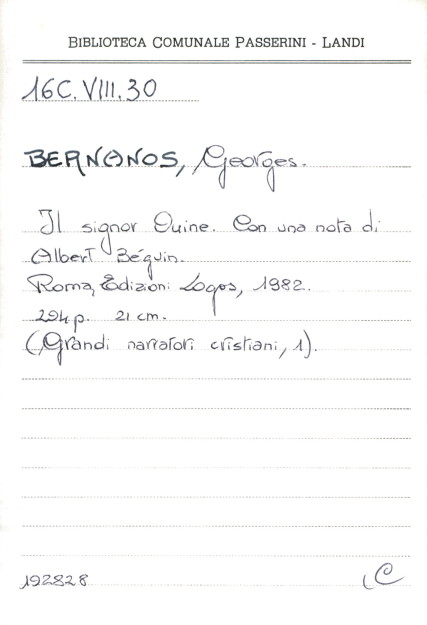 BIBLIOTECA COMUNALE PASSERINI - LANDI
16C.VIII.30
BERNANOS, Georges.
Il signor Ouine. Con una nota di
Albert Béguin.
Roma, Edizioni Logos, 1982.
294 p. 21 cm.
(Grandi narratori cristiani, 1).
192828
C